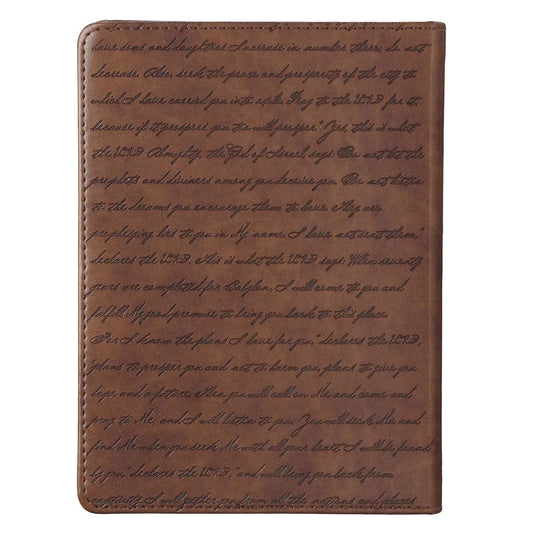 have sons and daughters. Increase in number there; do not
decrease. Also, seek the peace and prosperity of the city to
which I have carried you into exile. Pray to the LORD for it,
because if it prospers, you too will prosper." Yes, this is what
the LORD Almighty, the God of Israel, says: "Do not let the
prophets and diviners among you deceive you. Do not listen
to the dreams you encourage them to have. They are
prophesying lies to you in My name. I have not sent them,"
declares the LORD. This is what the LORD says: "When seventy
years are completed for Babylon, I will come to you and
fulfill My good promise to bring you back to this place.
For I know the plans I have for you," declares the LORD,
"plans to prosper you and not to harm you, plans to give you
hope and a future. Then you will call on Me and come and
pray to Me, and I will listen to you. You will seek Me and
find Me when you seek Me with all your heart. I will be found
by you," declares the LORD, "and will bring you back from
captivity. I will gather you from all the nations and places